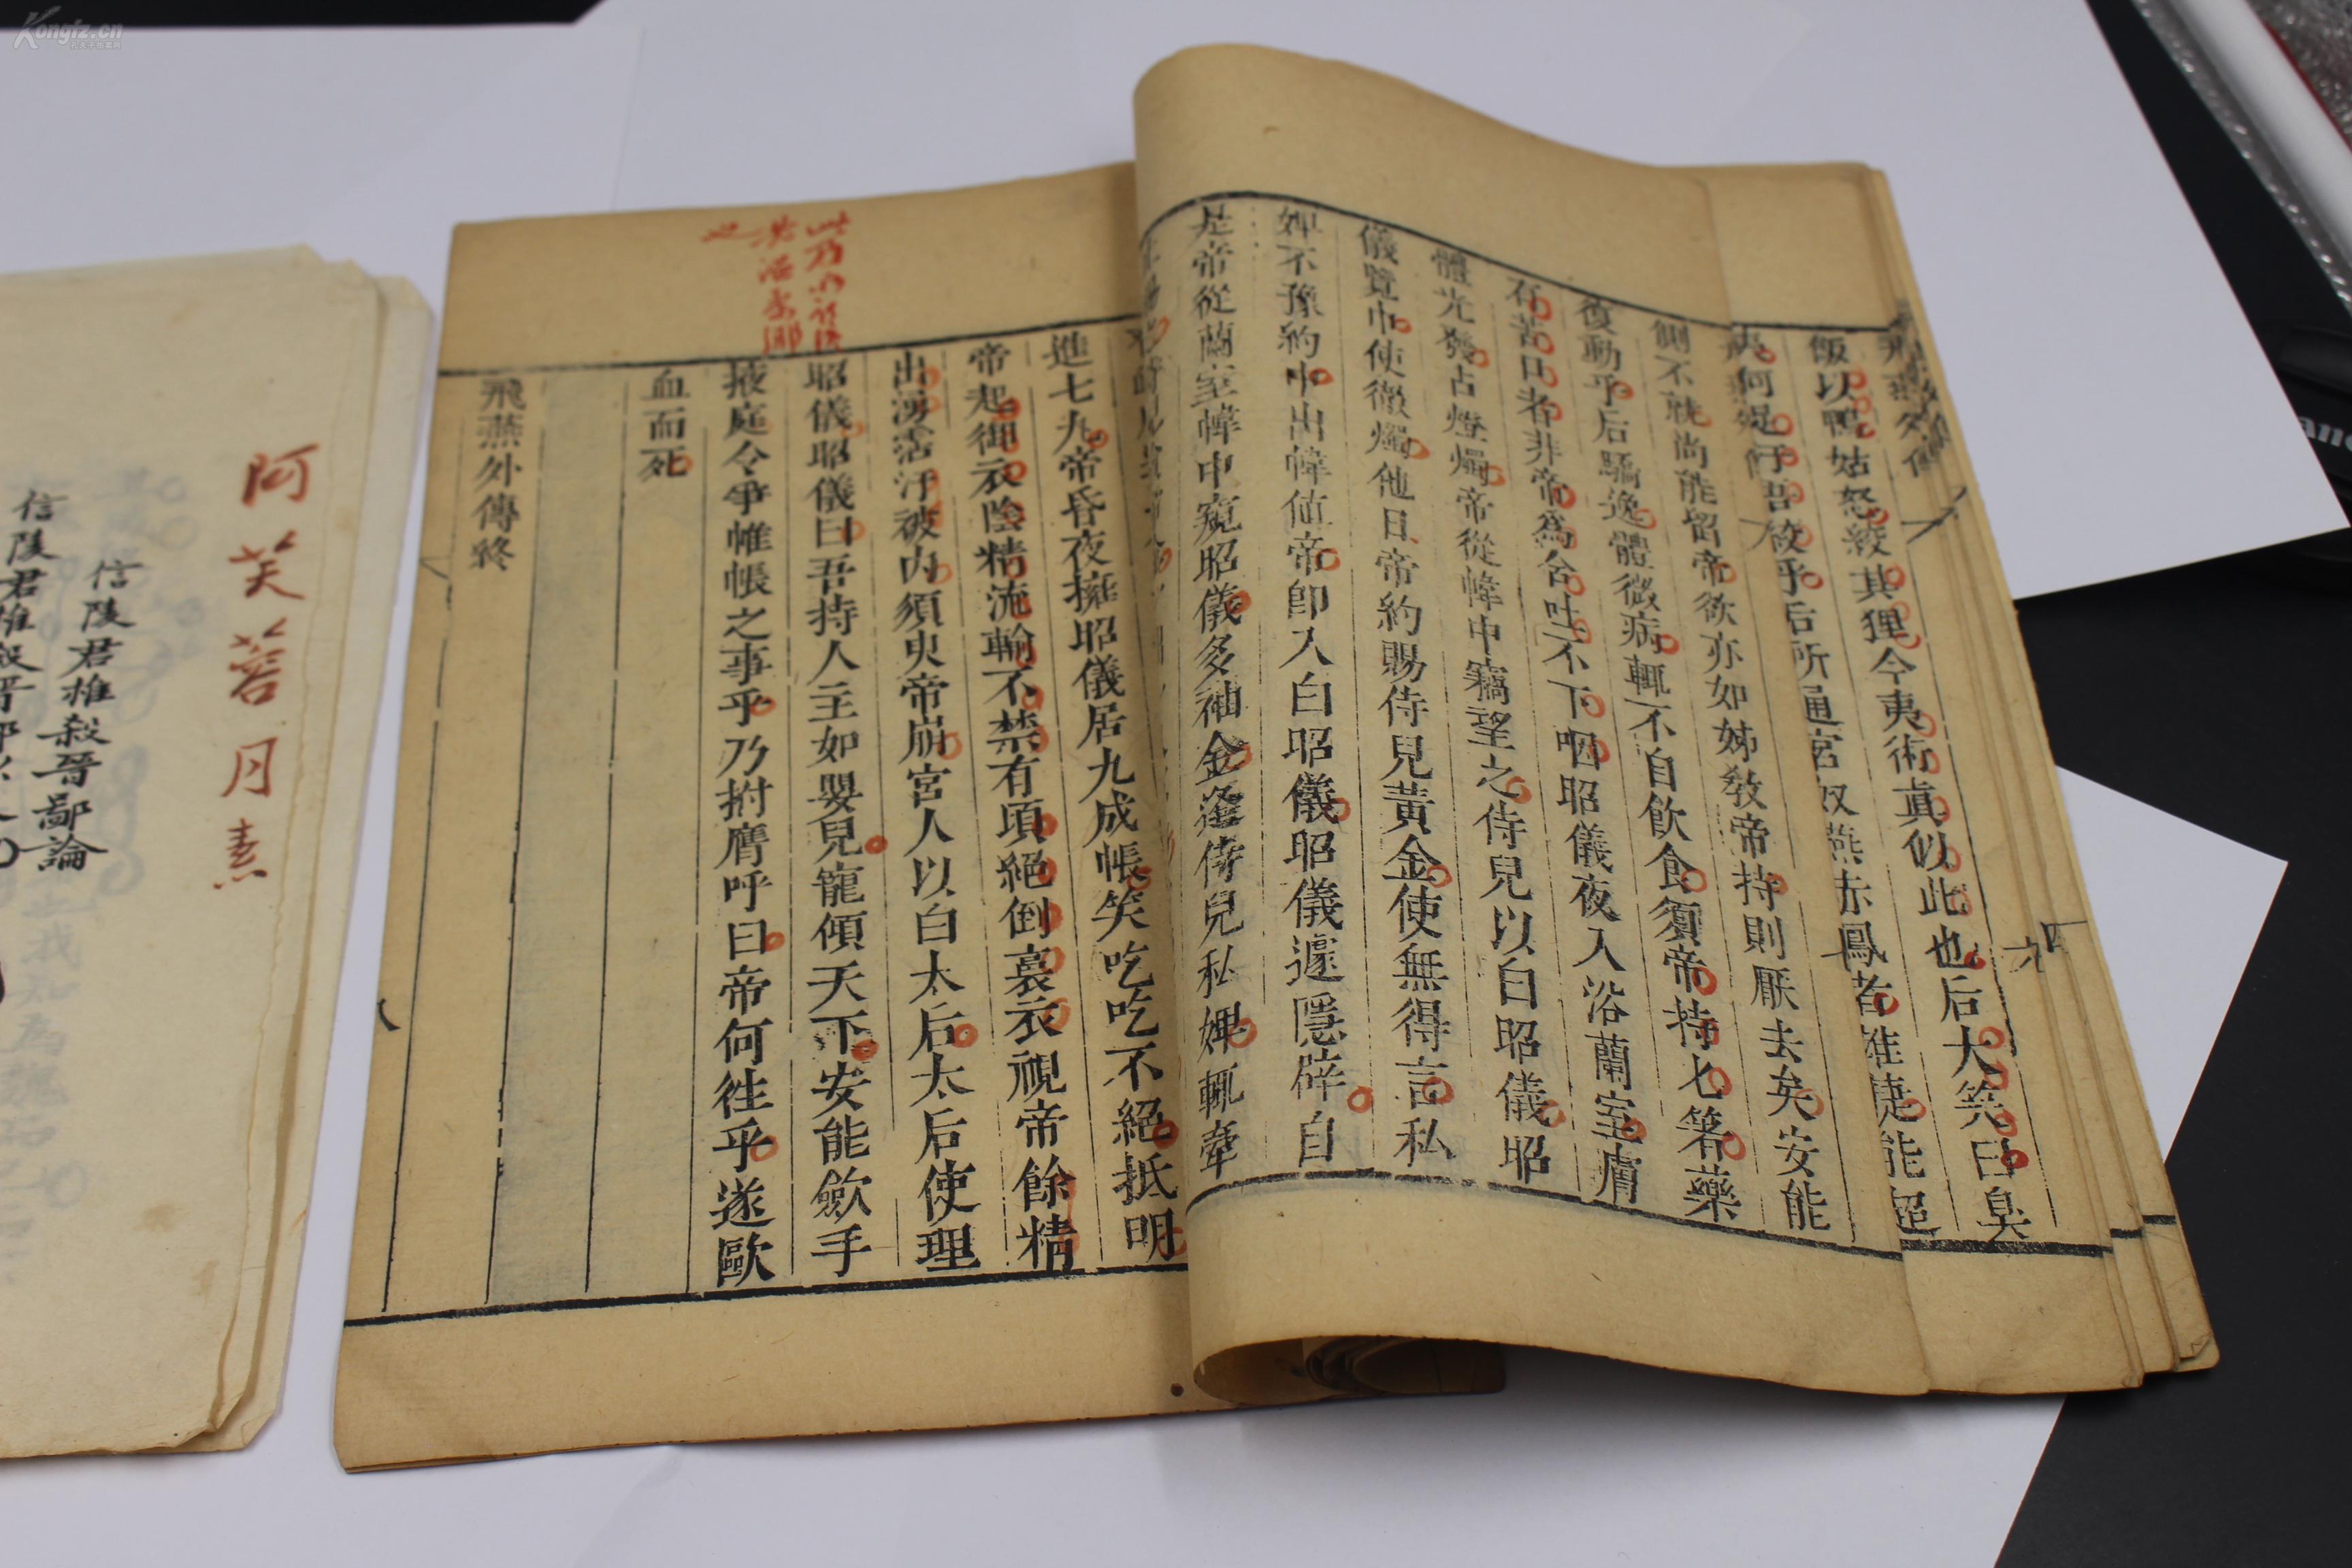 飯以鴨姑怒絞其狸今夷術真似此也后大笑曰臭
夷何足汙吾絞乎后所通宮奴燕赤鳳者雄捷能超
側不就尚能留帝欲亦如姊教帝持則厭去矣安能
復動乎后驕逸體微病輒不自飲食須帝持匕箸藥
有苦口者非帝為含吐不下咽昭儀夜入浴蘭室膚
體光發占燈燭帝從幃中竊望之侍兒以白昭儀昭
儀覽巾使徹燭他日帝約賜侍兒黃金使無得言私
婢不豫約中出幃值帝即入白昭儀昭儀遽隱辟自
是帝從蘭室幃中窺昭儀多袖金逢侍兒私婢輒牽
進七九帝昏夜擁昭儀居九成帳笑吃吃不絕抵明
帝起御衣陰精流輸不禁有頃絕倒裛衣視帝餘精
出湧霑汙被內須臾帝崩宮人以白太后太后使理
昭儀昭儀曰吾持人主如嬰兒寵傾天下安能歛手
掖庭令爭帷帳之事乎乃拊膺呼曰帝何徃乎遂歐
血而死
飛燕外傳終
八
阿芙蓉月素
信陵君椎殺晉鄙論
信陵君椎殺晉鄙
Kongfz.cn